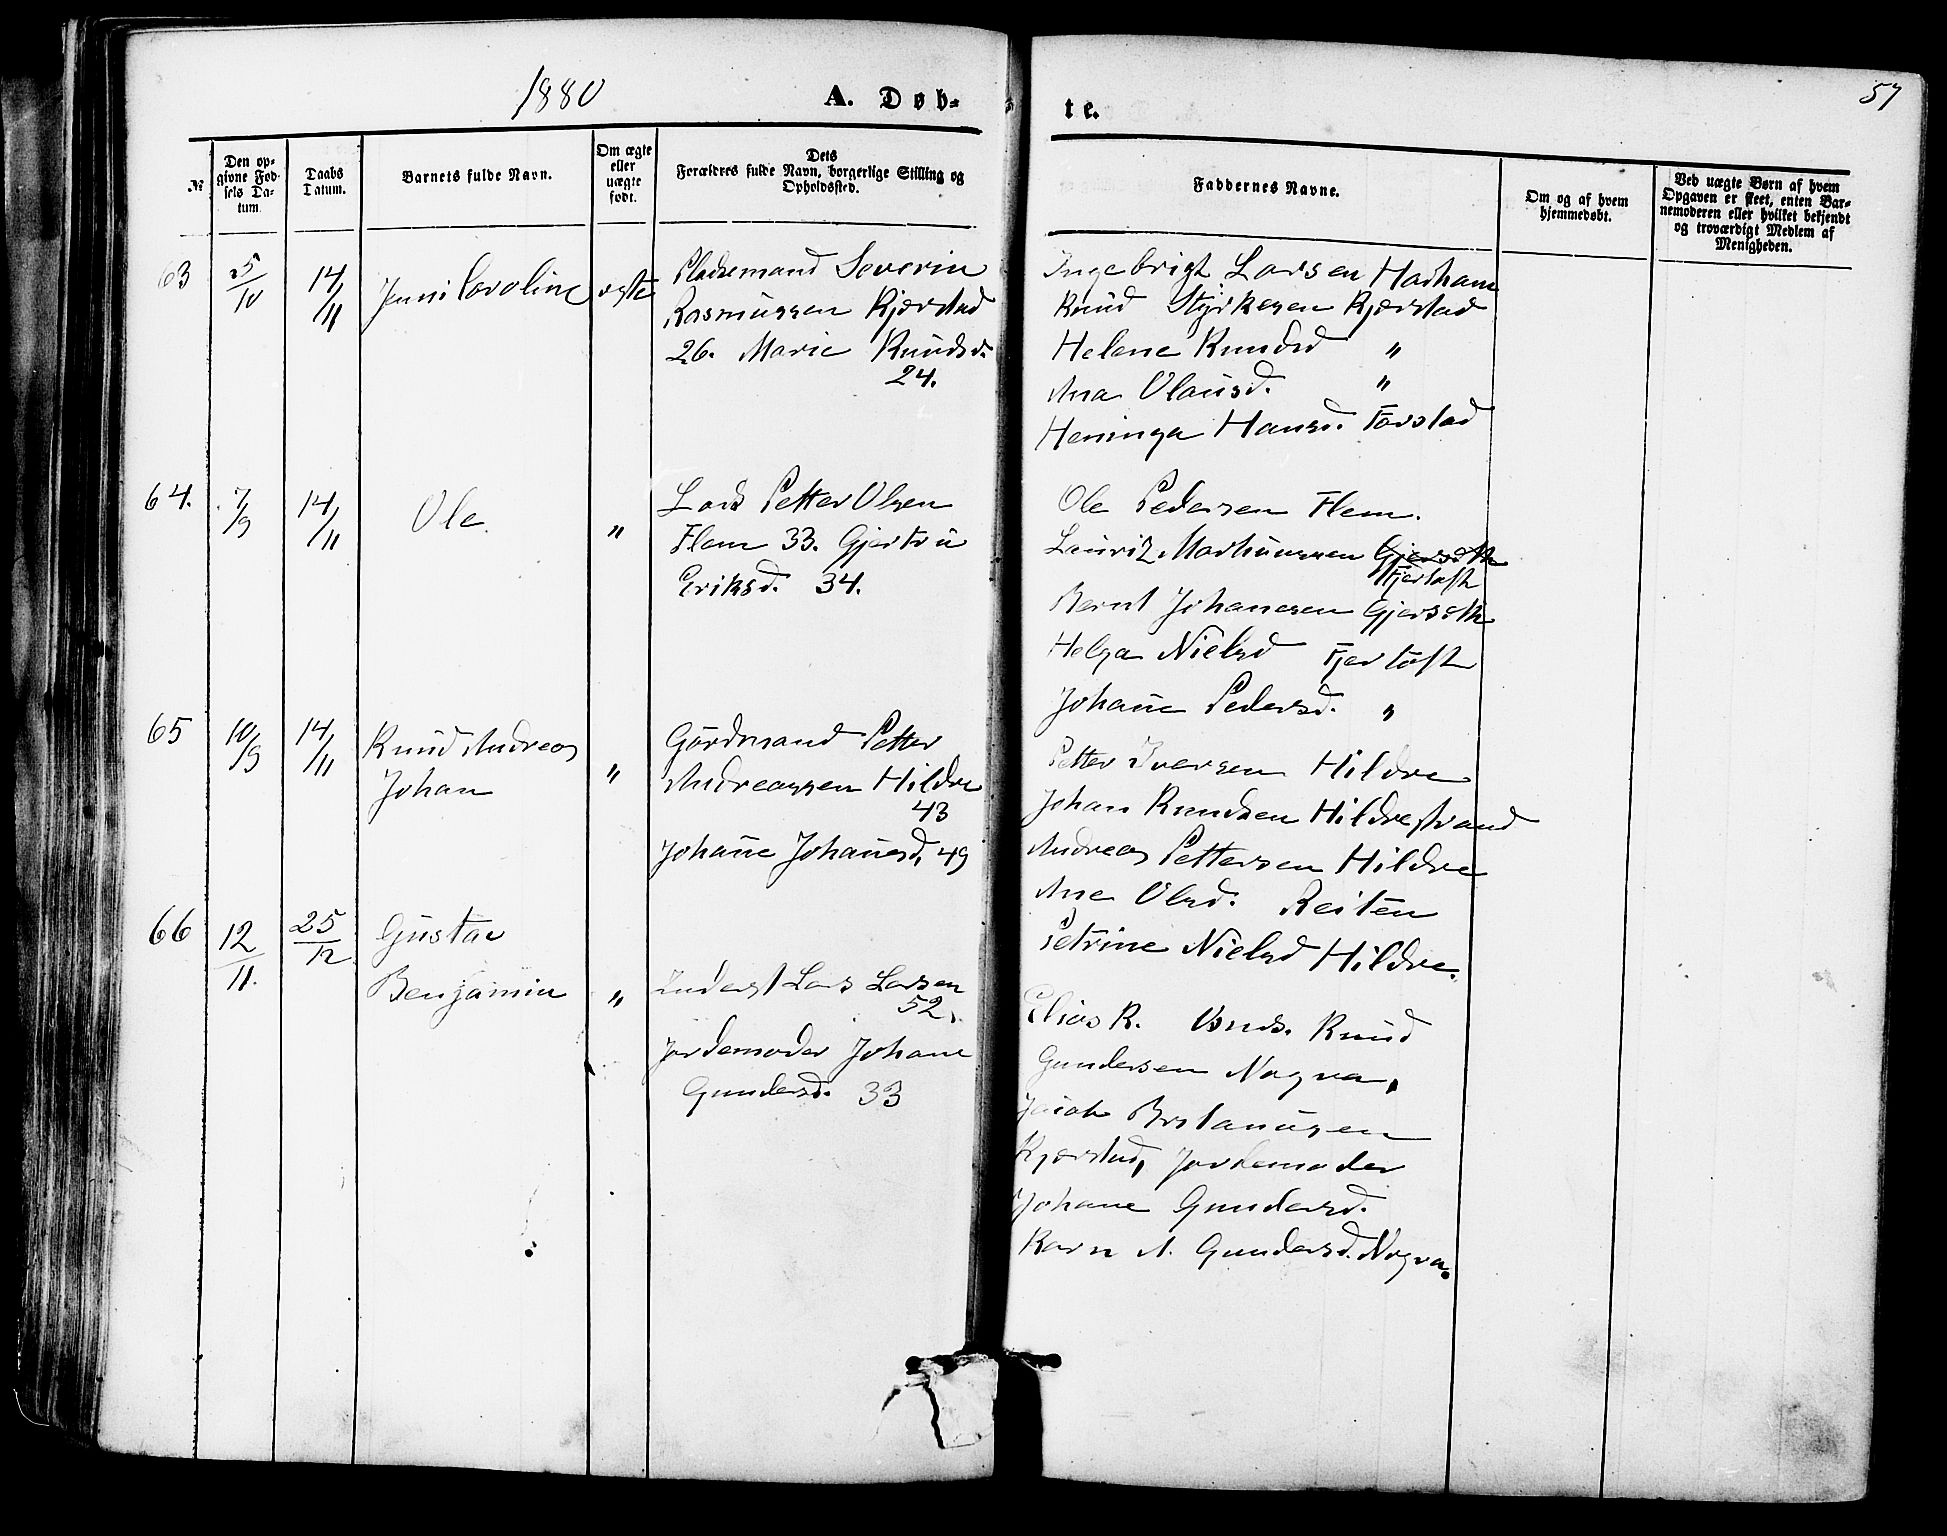 1880
A. Døb-
te.
57
№
Den op-
givne Fød-
sels Da-
tum.
Daabs
Datum.
Barnets fulde Navn.
Om ægte
eller
uægte
født.
Dets
Forældres fulde Navn, borgerlige Stilling og
Opholdssted.
Faddernes Navne.
Om og af hvem
hjemmedøbt.
Ved uægte Børn af hvem
Opgaven er skeet, enten Bar-
nemoderen eller hvilket bekjendt
og troværdigt Medlem af
Menigheden.
63
5/10
14/11
Jenni Caroline
ægte
Pladsemand Severin
Rasmussen Kjærstad
26. Marie Knudsd.
24.
Ingebrigt Larsen Harham
Knud Styrkesen Kjærstad
Helene Knudsd "
Ana Olausd. "
Heninga Hansd. Farstad
64.
7/9
14/11
Ole.
"
Lars Petter Olsen
Flem 33. Gjertru
Eriksd. 34.
Ole Pedersen Flem.
Lauriz Markussen Gjerseth
Fjertoft
Bernt Johanesen Gjerseth
Helga Nielsd Fjertoft
Johane Pedersd. "
65
10/9
14/11
Knud Andreas
Johan
"
Gårdmand Petter
Andreassen Hildre
43
Johane Johanesd. 49
Petter Iversen Hildre
Johan Knudsen Hildrestrand
Andreas Pettersen Hildre
Ane Olsd. Reiten
Petrine Nielsd Hildre.
66
12/11.
25/12
Gustav
Benjamin
"
Inderst Lars Larsen
52.
Jordemoder Johane
Gundersd. 33
Elias R. Knud
Gundersen Nogva,
Jacob
Kjærstad, Jordemoder
Johane Gundersd.
Karn A. Gundersd. Nogva.